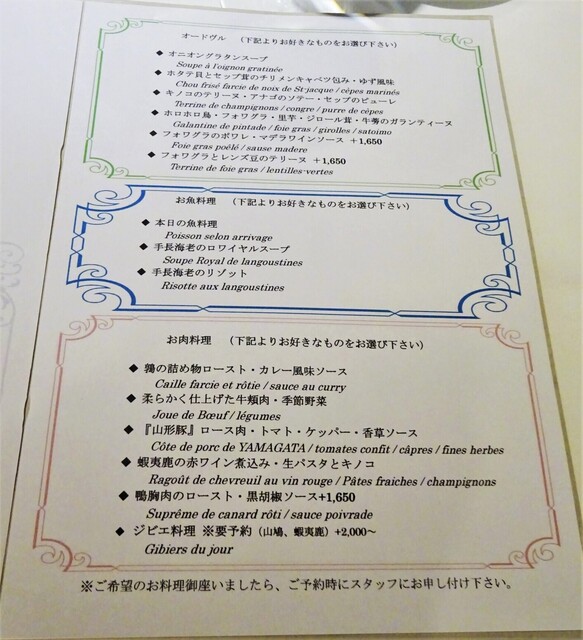 オードヴル （下記よりお好きなものをお選び下さい）
◆ オニオングラタンスープ
Soupe à l'oignon gratinée
◆ ホタテ貝とセップ茸のチリメンキャベツ包み・ゆず風味
Chou frisé farcie de noix de St-jacque / cèpes marinés
◆ キノコのテリーヌ・アナゴのソテー・セップのピューレ
Terrine de champignons / congre / purre de cèpes
◆ ホロホロ鳥・フォワグラ・里芋・ジロール茸・牛蒡のガランティーヌ
Galantine de pintade / foie gras / girolles / satoimo
◆ フォワグラのポワレ・マデラワインソース +1,650
Foie gras poêlé / sause madere
◆ フォワグラとレンズ豆のテリーヌ +1,650
Terrine de foie gras / lentilles-vertes
お魚料理 （下記よりお好きなものをお選び下さい）
◆ 本日の魚料理
Poisson selon arrivage
◆ 手長海老のロワイヤルスープ
Soupe Royal de langoustines
◆ 手長海老のリゾット
Risotte aux langoustines
お肉料理 （下記よりお好きなものをお選び下さい）
◆ 鶉の詰め物ロースト・カレー風味ソース
Caille farcie et rôtie / sauce au curry
◆ 柔らかく仕上げた牛頬肉・季節野菜
Joue de Bœuf / légumes
◆ 『山形豚』ロース肉・トマト・ケッパー・香草ソース
Côte de porc de YAMAGATA / tomates confit / câpres / fines herbes
◆ 蝦夷鹿の赤ワイン煮込み・生パスタとキノコ
Ragoût de chevreuil au vin rouge / Pâtes fraiches / champignons
◆ 鴨胸肉のロースト・黒胡椒ソース+1,650
Suprême de canard rôti / sauce poivrade
◆ ジビエ料理 ※要予約（山鳩、蝦夷鹿）+2,000～
Gibiers du jour
※ご希望のお料理御座いましたら、ご予約時にスタッフにお申し付け下さい。